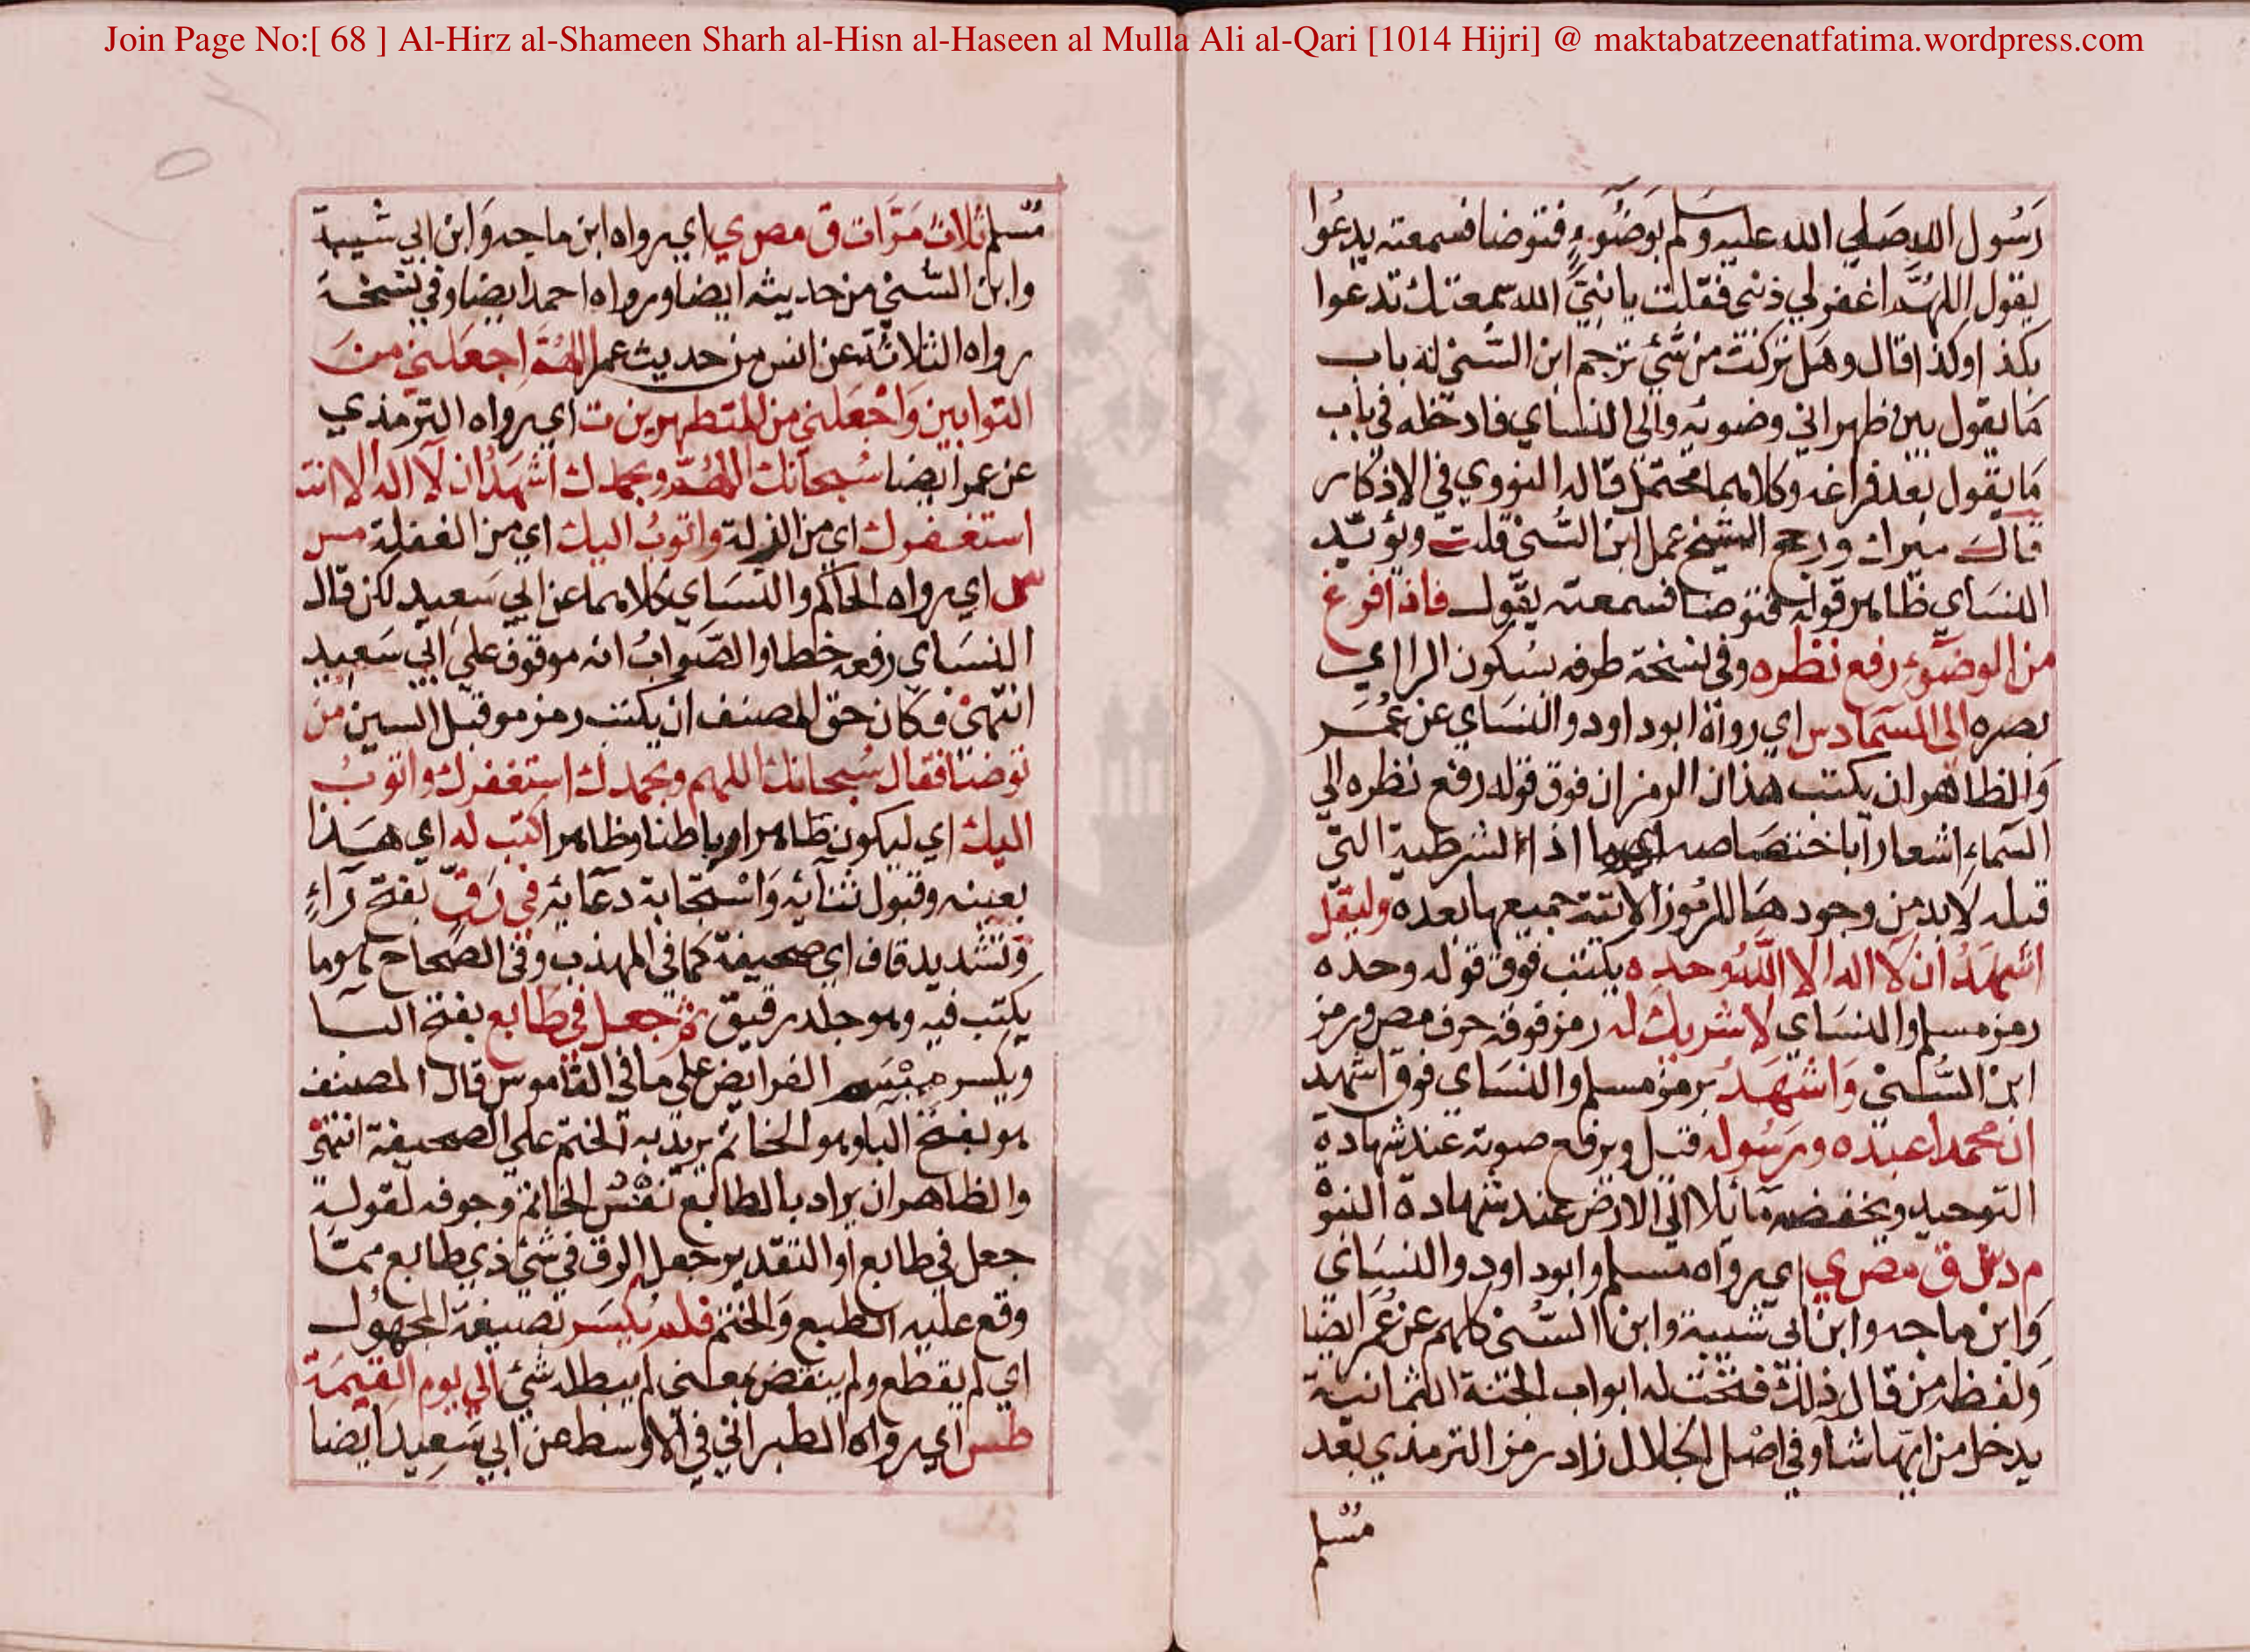 Join Page No:[ 68 ] Al-Hirz al-Shameen Sharh al-Hisn al-Haseen al Mulla Ali al-Qari [1014 Hijri] @ maktabatzeenatfatima.wordpress.com
رَسُول الله صَلي الله عليه وسلم بوَضُوءٍ فتوضا فسمعته يدعُوا
يقول اللهُمَّ اغفر لي ذنبي فقلت يا نبيَّ الله سمعتك تدعوا
بكذا وكذا قال وهَل تركت من شئ ترجم ابن السُّني له باب
مَا يقول بين ظهراني وضوئه والي النساي فادخله في باب
مَا يقول بَعد فراغه وكلاهما محتمل قاله النووي في الاذكار
قال ميرك ورجح الشيخ عمل ابن السُّني قلت ويؤيّد
النسَاي ظاهر قوله فتوضا فسمعته يقول فاذا فرغ
من الوضُوء رفع نظره وفي نسخة طرفه بسُكون الرا اي
بصره الى السّما د س اي رواه ابو داود والنسَاي عن عُمَر
وَالظاهر ان يكتب هذان الرمزان فوق قوله رفع نظره الي
السّماءِ اشعارا باختصَاصه اذا الشرطية التي
قبله لابد من وجودهَا للرمُوز الاتية جميعها بعده وليقل
اشهَدُ ان لا اله الا اللّهُ وحده يكتب فوق قوله وحده
رمز مسلم والنسَاي لا شريك له رمز فوقه حرف مص ورمز
ابن السُّني وَاشهَدُ برمز مسلم والنسَاي فوق اشهد
ان محمدا عبده ورسُوله قيل ويرفع صوته عند شهادة
التوحيد ويخفضه مَائلا الى الارض عند شهادة النبوة
م د س ق مص ي اي رواه مسلم وابو داود والنسَاي
وَابن ماجه وابن ابي شيبة وابن السُّني كلهم عن عُمَر ايضا
ولفظه من قال ذلك فتحت له ابواب الجنة الثمانية
يدخل من ايّها شا وفي اصْل الجلال زاد رمز الترمذي بعد
مُسْلم
مُسْلم ثلاث مَرَّات ق مص ي اي رواه ابن ماجه وَابن ابي شيبة
وابن السُّني من حديثه ايضا ورواه احمد ايضا وفي نسخة
رواه الثلاثة عن انس من حديث عمر اللهُمَّ اجعَلني منَ
التوابين وَاجْعَلني من المتطهرين ت اي رواه الترمذي
عن عمر ايضا سُبحانك اللهُمّ وبحمدك اشهَدُ ان لا اله الا انت
استغفرك اي من الزلة واتوبُ اليك اي من الغفلة مس
س اي رواه الحاكم والنسَاي كلاهما عن ابي سَعِيد لكن قال
النسَاي رفعه خطا والصَّوابُ انه موقوف على ابي سَعِيد
انتهى فكان حق المصنف ان يكتب رمز مو قبل السين من
توضا فقال سُبحانك اللهم وبحمدك استغفرك واتوبُ
اليك اي ليكون طاهرا باطنا وظاهرا كتب له اي هَذا
بعينه وقبول ثنائه وَاسْتجابة دعَائه في رَقّ بفتح رَاءٍ
وتشديد قاف اي صحيفة كما في المهذب وفي الصَّحاح هو ما
يكتب فيه وهو جلد رقيق ثم جعل في طابع بفتح البا
ويكسر ميْسَم الفرايض على ما في القاموس قال المصنف
هو بفتح البا وهو الخاتم يريد به الختم على الصحيفة انتهى
والظاهر ان يراد بالطابع نقش الخاتم وجوفه لقوله
جعل في طابع او التقدير جعل الرق في شئ ذي طابع ممّا
وقع عليه الطبع وَالختم فلم يُكسَر بصيغة المجهُول
اي لم يقطع ولم ينقض بمعنى لم يبطله شئ الي يوم القيمَة
طس اي رواه الطبراني في الاوسط عن ابي سَعِيد ايضا